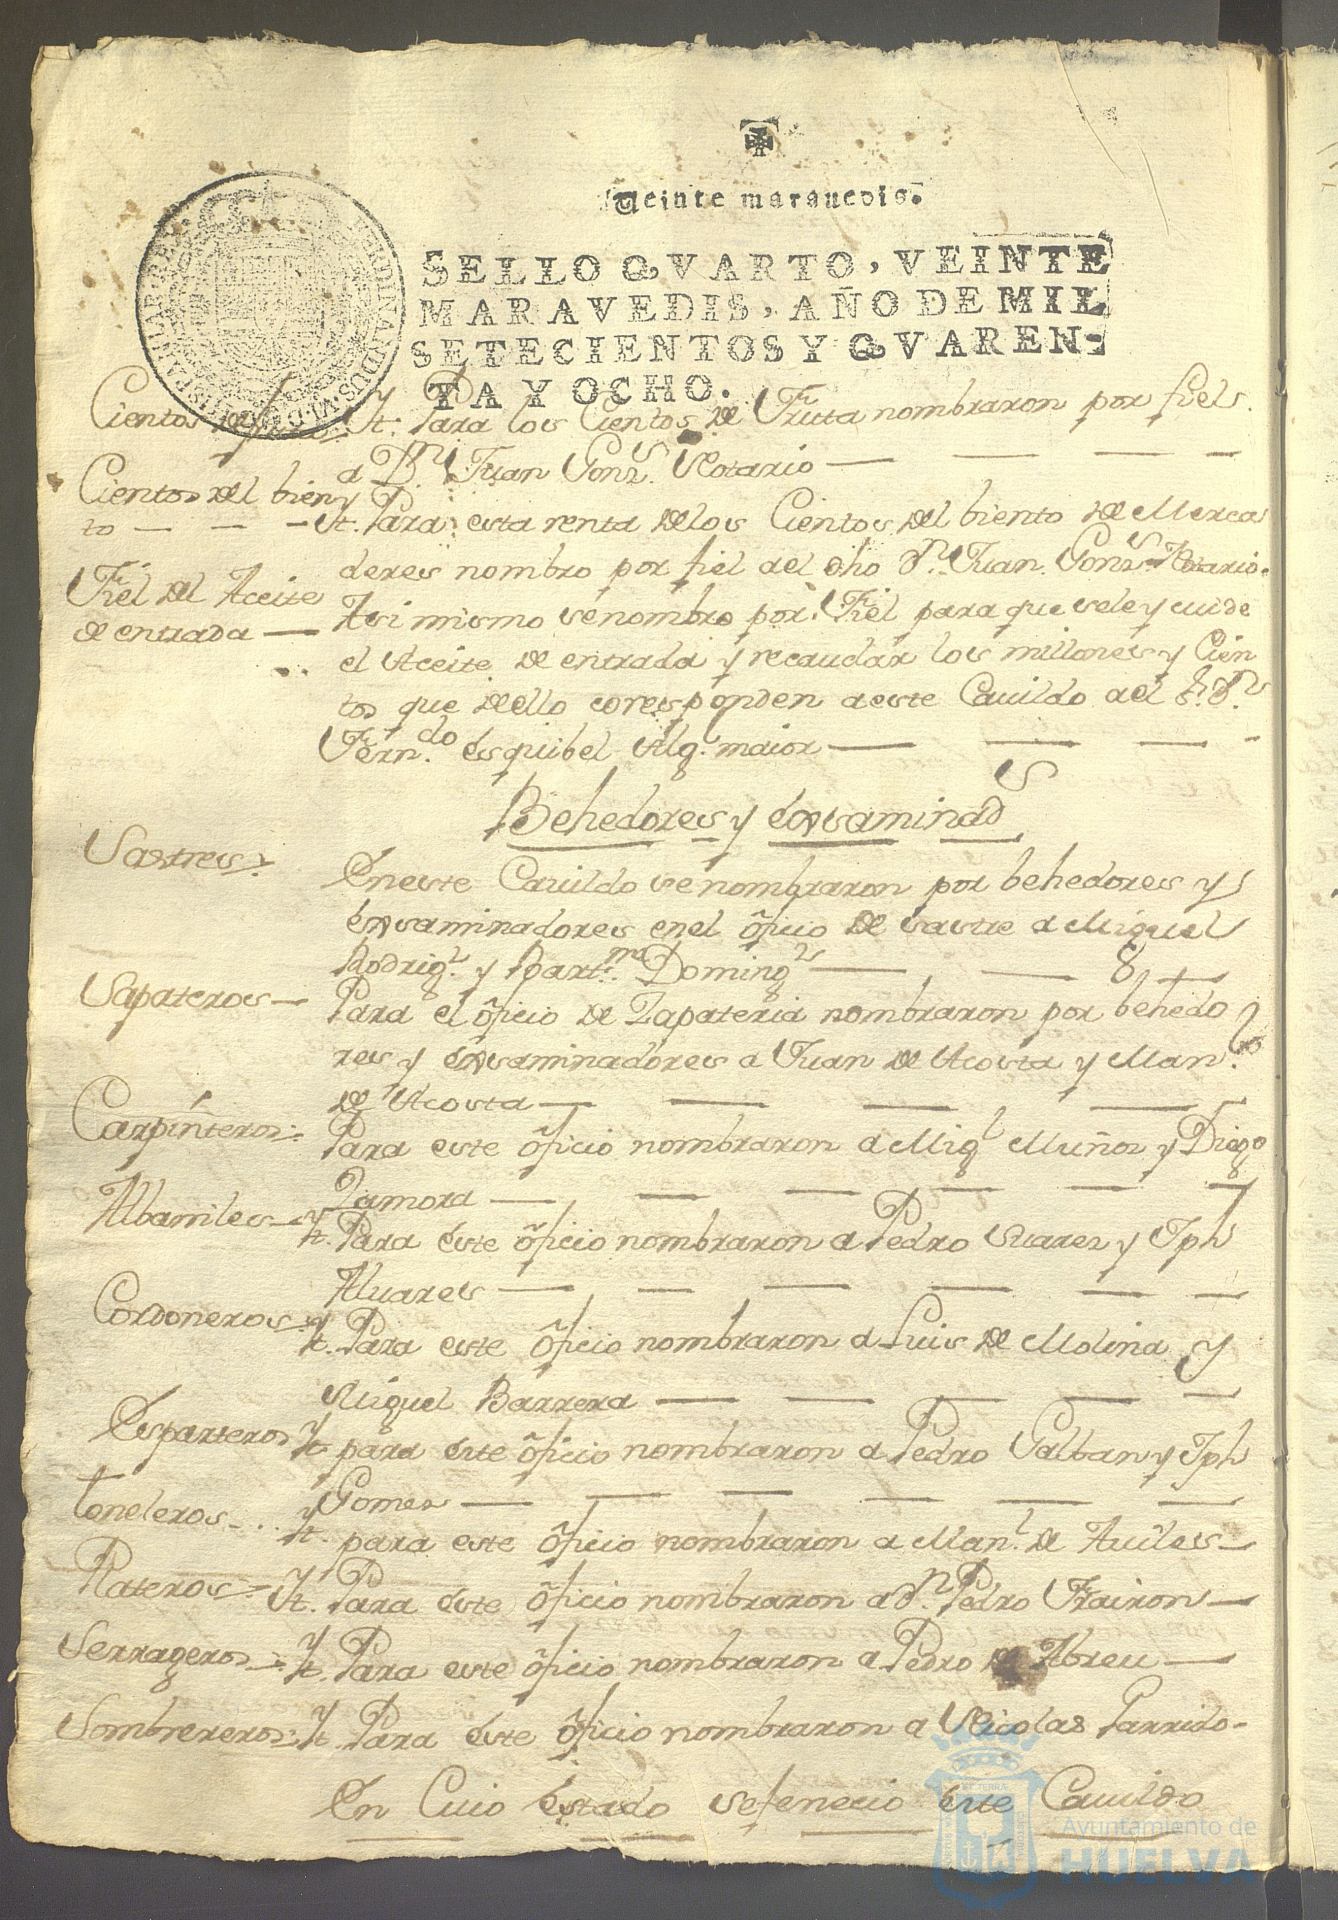 Veinte maravedis.
SELLO QVARTO, VEINTE
MARAVEDIS, AÑO DE MIL
SETECIENTOS Y QVAREN-
TA Y OCHO.
Cientos de
Yt. Para los Cientos de Fruta nombraron por fiels
a Dn. Juan Gonzs. Notario
Cientos del bien
to
Yt. Para esta renta delos Cientos del biento de Merca
deres nombro por fiel del dho Dn. Juan Gonzs. Notario.
Fiel del Aceite
de entrada
Asi mismo se nombro por Fiel para que sele y cuide
el Aceite de entrada y recaudar los millones y Cien
tos que dello coresponden a este Cavildo ael Sr. Dn.
Ferndo. Esquibel Alg. maior
Behedores y Exsaminads
Sastres.
En este Cavildo se nombraron por behedores y
Exsaminadores en el oficio de sastre a Miguel
Rodrigz. y Bartme. Domingz
Sapateros
Para el oficio de Zapateria nombraron por behedo
res y Exsaminadores a Juan de Acosta y Man.
de Acosta
Carpinteros
Para este oficio nombraron a Migl Muños y Diego
Zamora
Albamiles
Yt. Para este oficio nombraron a Pedro Suares y Jph
Alvares
Cordoneros
Yt. Para este oficio nombraron a Luis de Molina y
Miguel Barrera
Esparteros
Yt. para este oficio nombraron a Pedro Galban y Jph
Gomes
toneleros
Yt. para este oficio nombraron a Manl. de Aviles
Plateros
Yt. Para este oficio nombraron a Dn. Pedro Frairon
Serrageros
Yt. Para este oficio nombraron a Pedro de Abreu
Sombrereros
Yt. Para este oficio nombraron a Nicolas Parrido
En Cuio Estado se fenecio este Cavildo
Ayuntamiento de
HUELVA